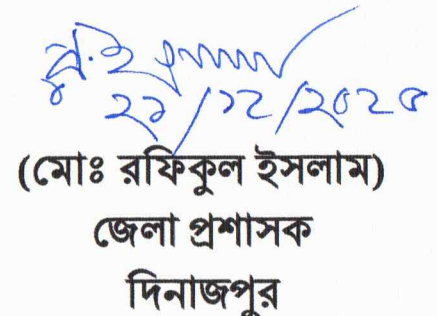 ২১/১২/২০২৫
(মোঃ রফিকুল ইসলাম)
জেলা প্রশাসক
দিনাজপুর